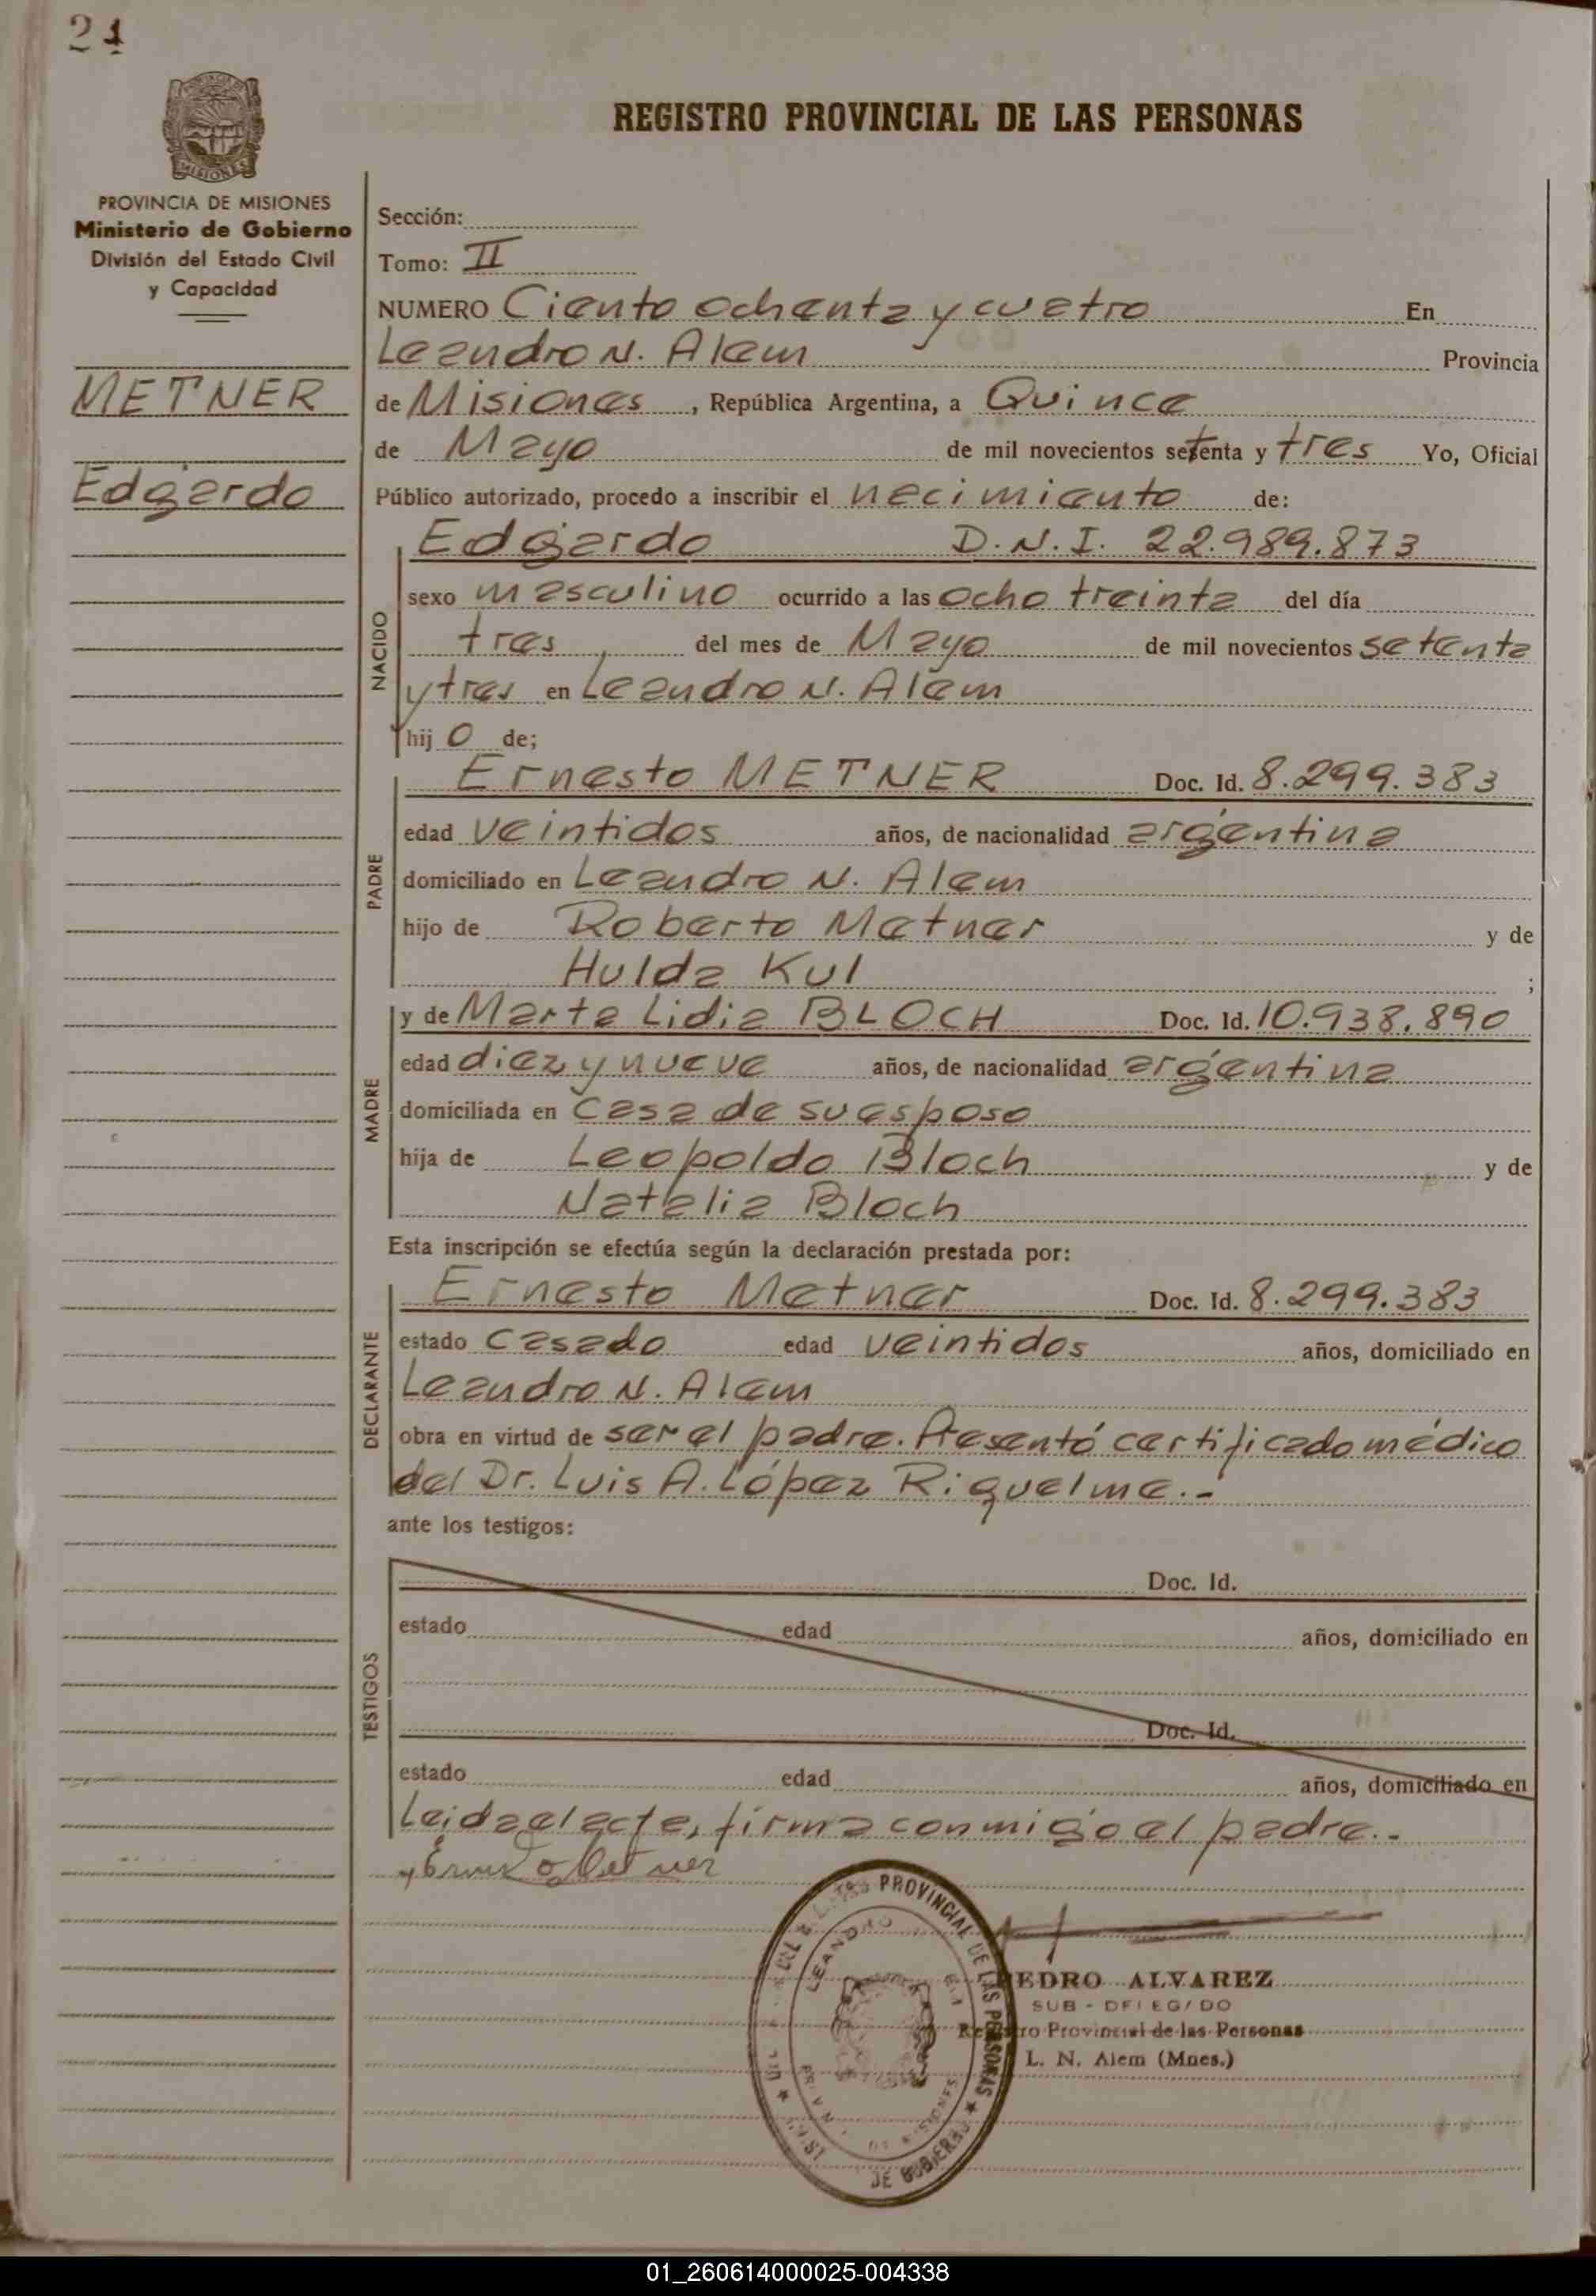 24
MISIONES
PROVINCIA DE MISIONES
Ministerio de Gobierno
División del Estado Civil
y Capacidad
METNER
Edgardo
REGISTRO PROVINCIAL DE LAS PERSONAS
Sección:
Tomo: II
NUMERO Ciento ochenta y cuatro En
Leandro N. Alem Provincia
de Misiones, República Argentina, a Quince
de Mayo de mil novecientos setenta y tres Yo, Oficial
Público autorizado, procedo a inscribir el nacimiento de:
NACIDO
Edgardo D.N.I. 22.989.873
sexo masculino ocurrido a las ocho treinta del día
tres del mes de Mayo de mil novecientos setenta
y tres en Leandro N. Alem
hij o de;
PADRE
Ernesto METNER Doc. Id. 8.299.383
edad veintidos años, de nacionalidad argentina
domiciliado en Leandro N. Alem
hijo de Roberto Metner y de
Hulda Kul ;
MADRE
y de Marta Lidia BLOCH Doc. Id. 10.938.890
edad diez y nueve años, de nacionalidad argentina
domiciliada en casa de su esposo
hija de Leopoldo Bloch y de
Natalia Bloch
Esta inscripción se efectúa según la declaración prestada por:
DECLARANTE
Ernesto Metner Doc. Id. 8.299.383
estado casado edad veintidos años, domiciliado en
Leandro N. Alem
obra en virtud de ser el padre. Presentó certificado médico
del Dr. Luis A. López Riquelme.-
ante los testigos:
TESTIGOS
Doc. Id.
estado edad años, domiciliado en
Doc. Id.
estado edad años, domiciliado en
Leida el acta, firma conmigo el padre.-
Ernesto Metner
PROVINCIAL DE LAS PERSONAS
LEANDRO
MISIONES
DE GOBIERNO
PEDRO ALVAREZ
SUB-DELEGADO
Registro Provincial de las Personas
L. N. Alem (Mnes.)
01_260614000025-004338